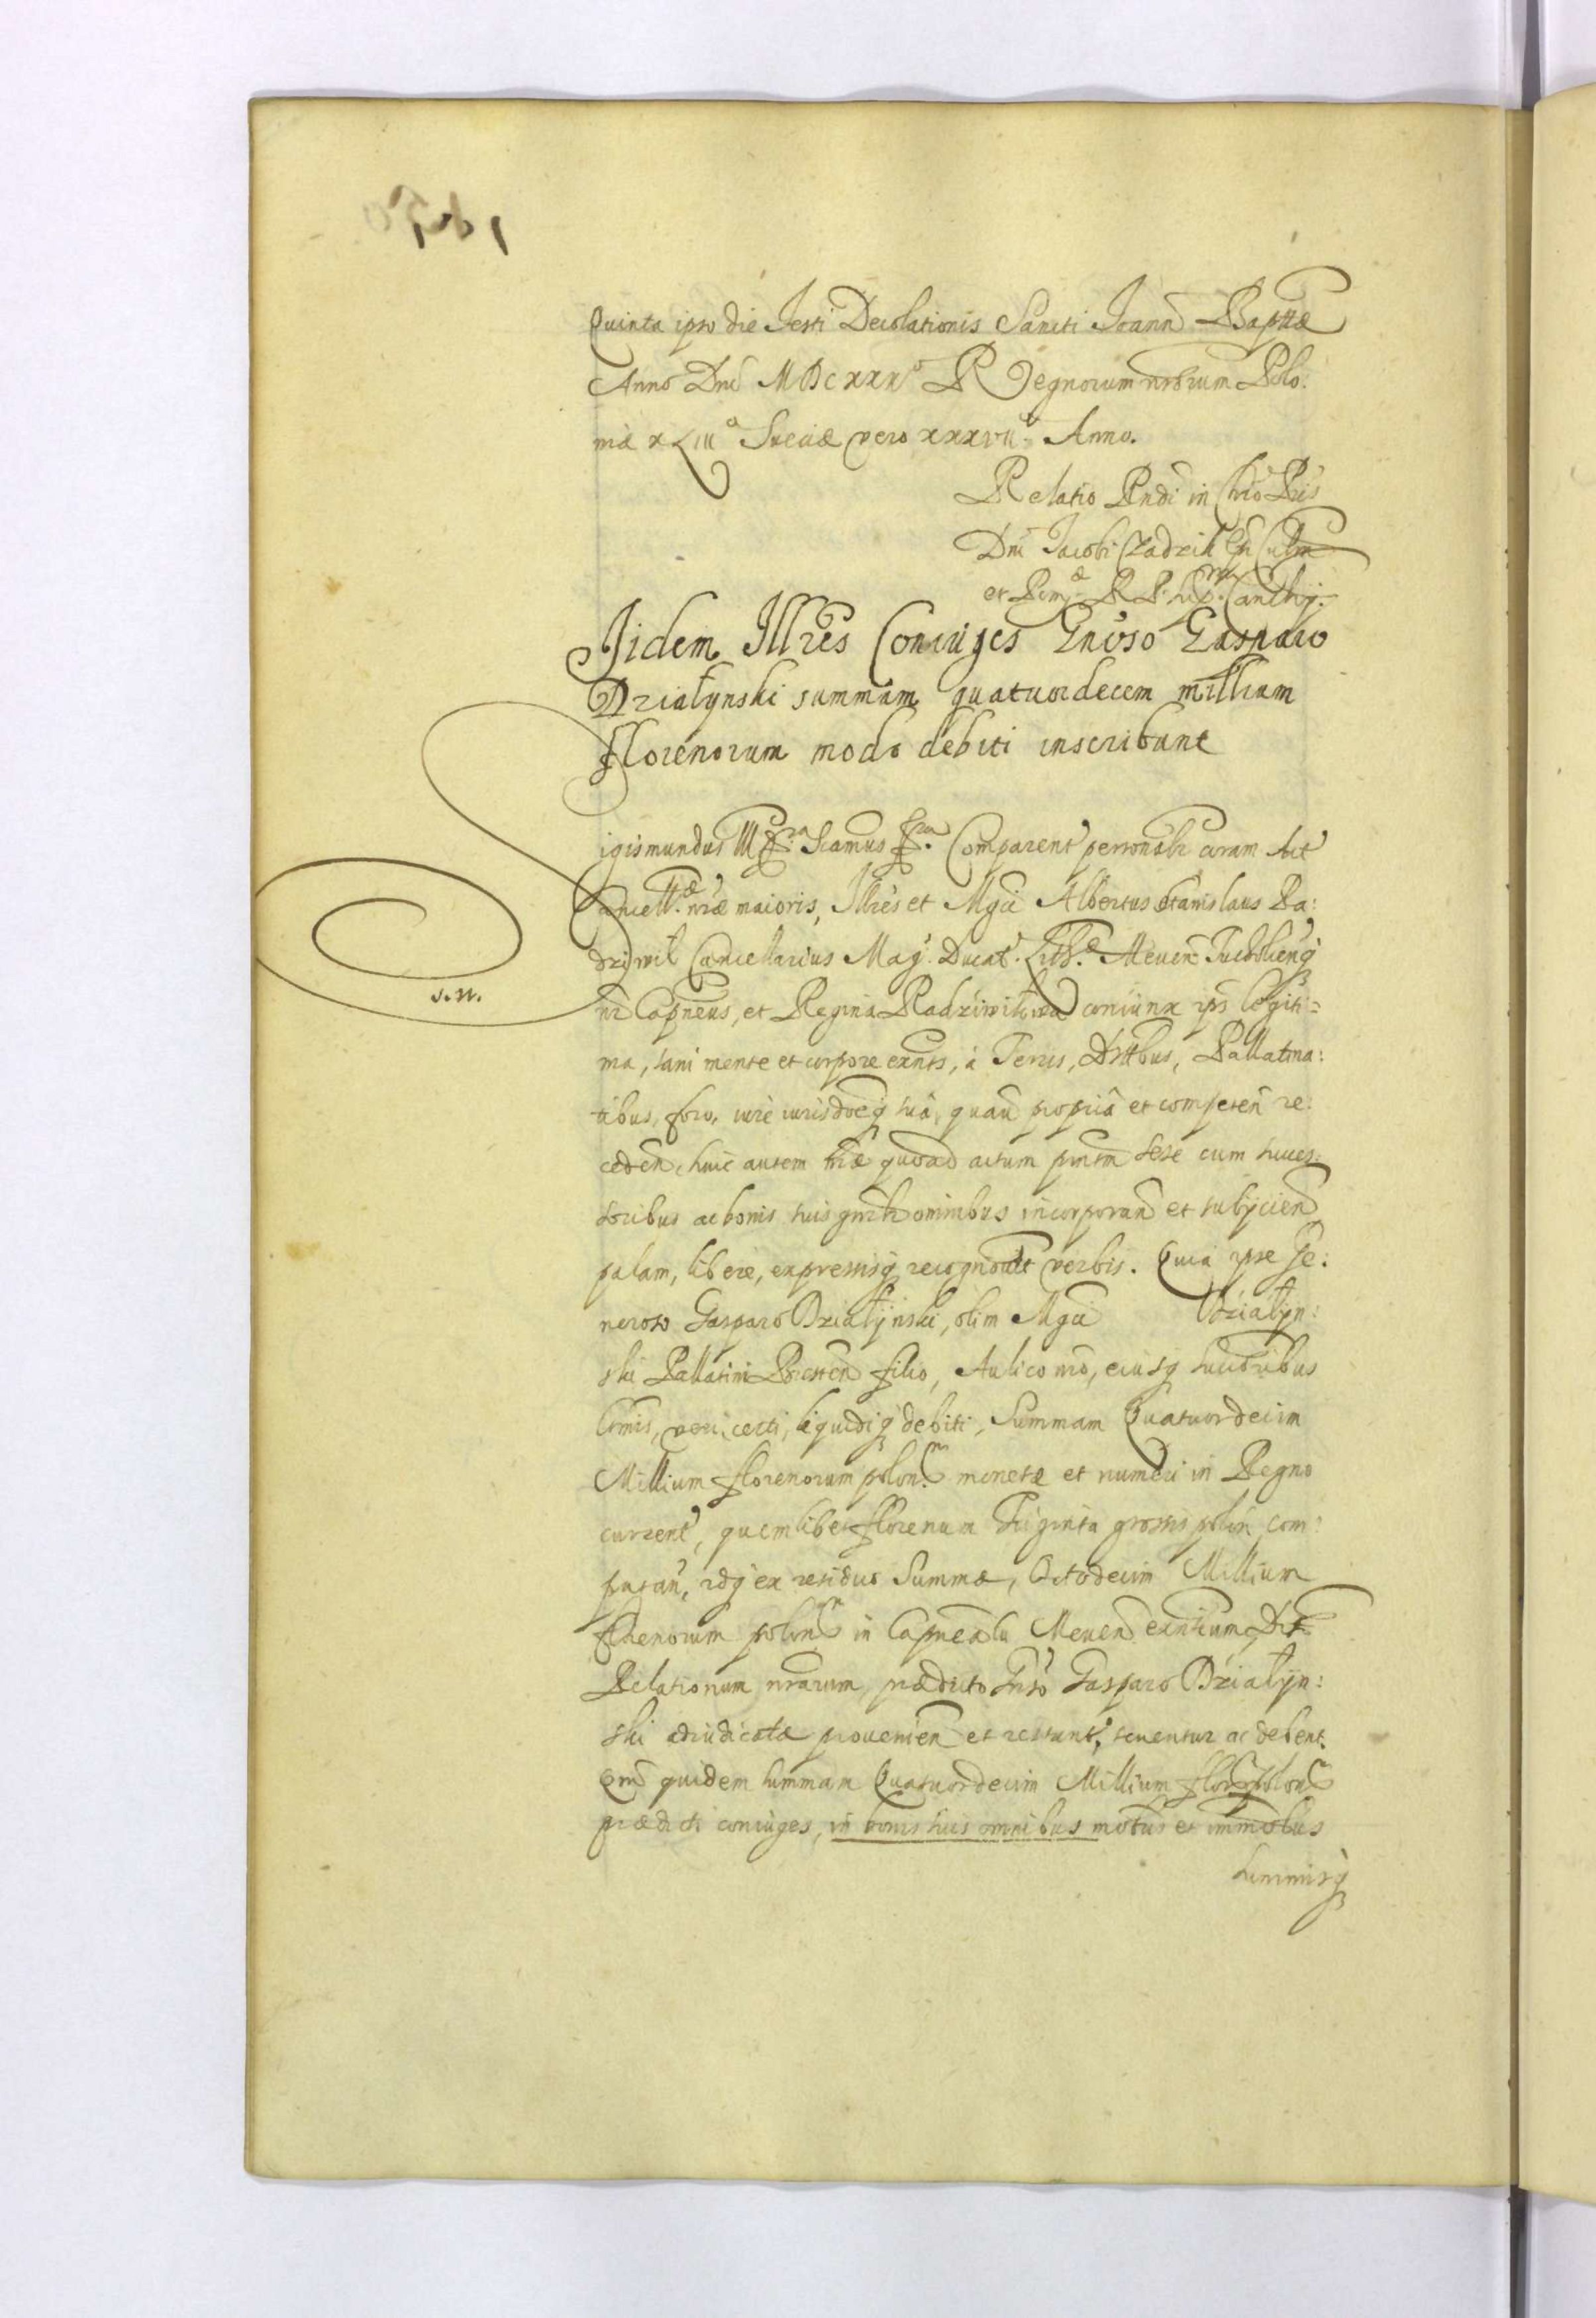 Quinta ipso die Festi Decolationis Sancti Joann Baptæ
Anno Dni MDCXXXº Regnorum nrorum Polo:
niæ XLIIIº Sueciæ vero XXXVIIº Anno.
Relatio Rndi in Chro Pris
Dni Jacobi Zadzik Epi Culm
et Pom: R P. sup. Cancrij.
Jidem Illres Coniuges Gnoso Gasparo
Działynski summam quatuordecem millium
Florenorum modo debiti inscribunt
Sigismundus III Scamus Comparent personalr coram Act
Cancell. nræ maioris, Illres et Mgci Albertus Stanislaus Ra:
dziwil Cancellarius Mag. Ducat. Lith. Meuen Tucholieng
nr Capneus, et Regina Radziwilowa coniunx ips legiti=
ma, sani mente et corpore exnts, á Terris, Distbus, Pallatina:
tibus, foro, iure iurisdoeq suâ, quavi propriâ et competen re:
ceden, huic autem nræ quoad actum pntm sese cum succes:
soribus ac bonis suis gnrlr omnibus incorporan et subijcien
palam, libere, expressisq recognovert verbis. Quia ipse Ge:
neroso Gasparo Działynski, olim Mgci Działyn:
ski Pallatini Bresten filio, Aulico nro, eiusq succoribus
lrmis, veri, certi, liquidiq debiti, Summam Quatuordecim
Millium florenorum polon. monetæ et numeri in Regno
current, quemlibet florenum Triginta grossis polon com:
putan, idq ex residuo Summæ, Octodecim Millium
florenorum polon in Capneatu Meuen exntium Dto
Relationum nrarum, prædicto Gnso Gasparo Działyn:
ski adiudicatæ provenien et restant, tenentur ac debent.
Qm quidem summam Quatuordecim Millium flor. polon
prædicti coniuges, in bonis suis omnibus mobus et immobus
summisq
s.n.